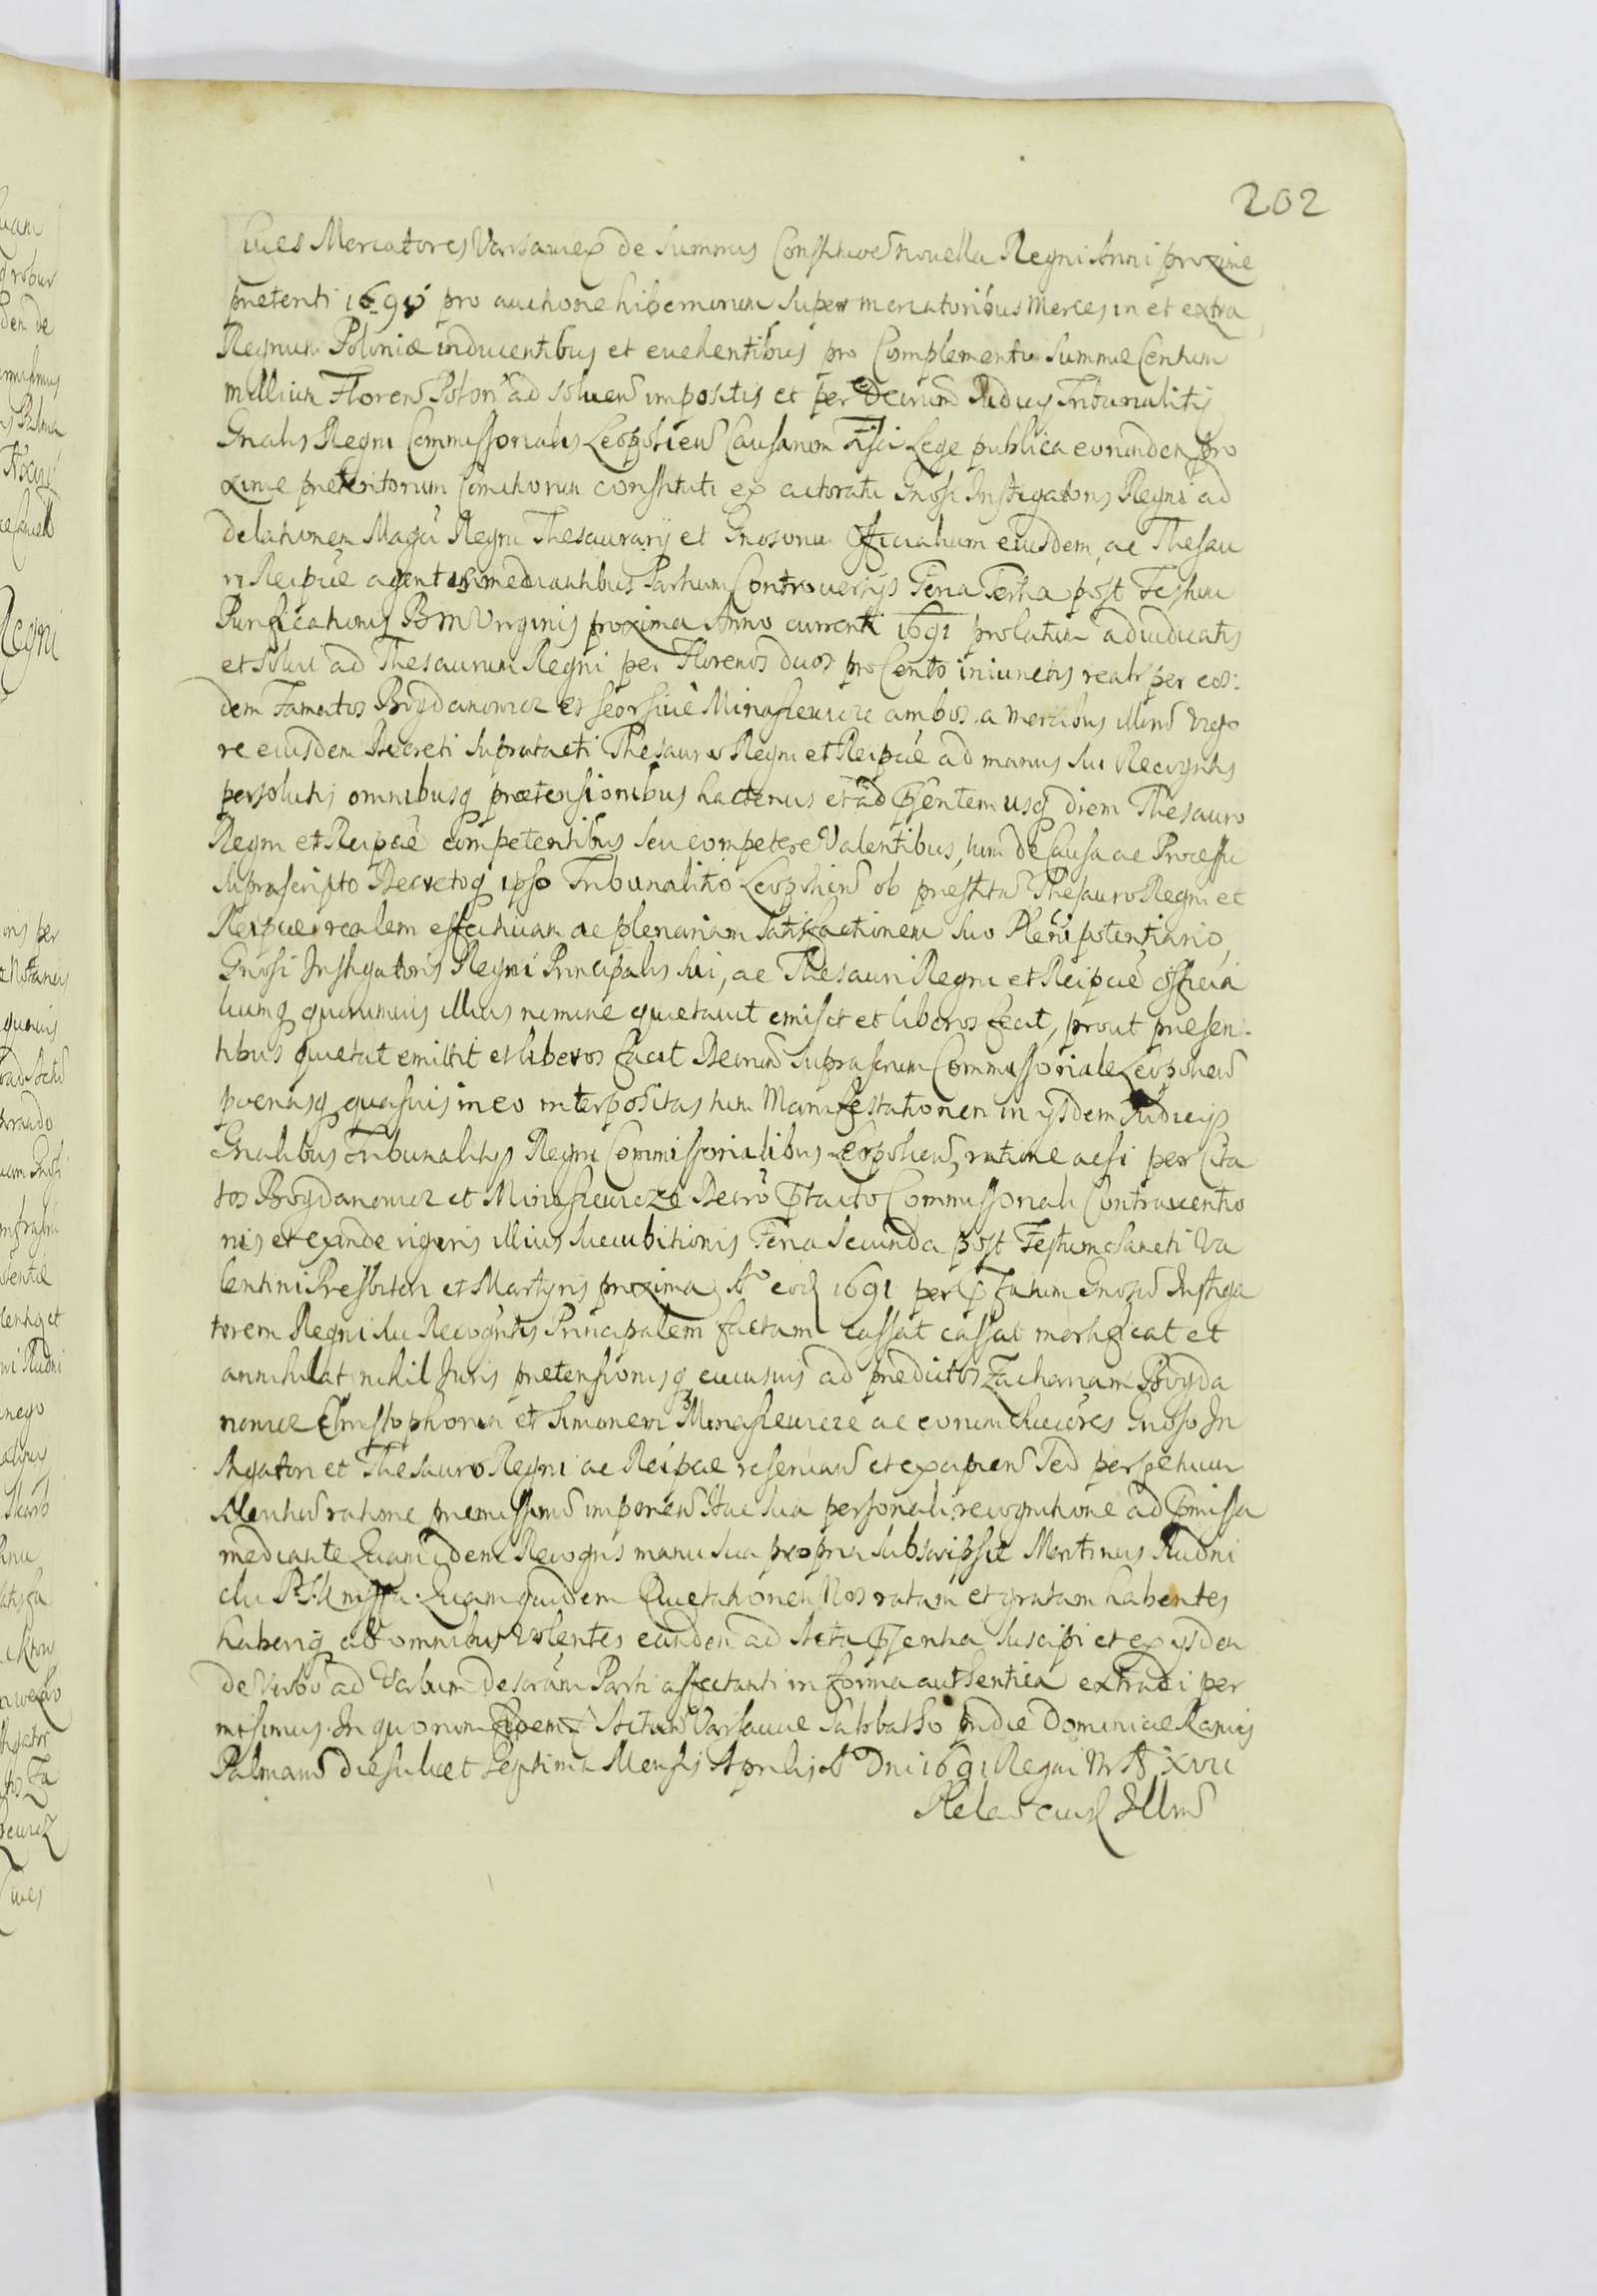 202
Cives Mercatores Varsavieñ de Summis Constitutioē novella Regni Anni proxime
preteriti 1690 pro auctione hibernorum super mercatoribus Merces in et extra
Regnum Poloniæ inducentibus et evehentibus pro Complemento Summæ Centum
millium Florenõ Polon̄ ad solvenđ impositis et per Decretum Judicij Tribunalitij
Gnalis Regni Commissorialis Leopolienš Causarum Fisci Lege publica eorundem pro
xime preteritorum Comitiorum constituti ex actoratu Gnosi Instigatoris Regni ad
delationem Magci Regni Thesaurarij et Gnosorum Officialium eiusdem, ac Thesau
ri Reipcæ agentis mediantibus Partium Controversijs Feria Tertia post Festum
Purificationis B M Virginis proxima Anno currenti 1691 prolatum adiudicatis
et solvi ad Thesaurum Regni per Florenos duos pro Cento iniunctis realr per eos:
dem Famatos Bogdanowicz et seorsive Minasiewicze ambos a mercibus illorũ vigo
re eiusdem Decreti supratacti Thesauro Regni et Reipcæ ad manus sui Recogntis
persolutis omnibusq prætensionibus hactenus et ad pſentem usq diem Thesauro
Regni et Reipcæ competentibus seu competere Valentibus, tum de Causa ac Processu
suprascripto Decretoq ipso Tribunalitio Leopolienš ob prestitã Thesauro Regni et
Reipcæ realem effectivam ac plenariam Satisfactionem suo Plenipotentiario,
Gnosi Instigatoris Regni Principalis sui, ac Thesauri Regni et Reipcæ officia
liumq quorumvis illius nomine quietavit emisit et liberos fecit, prout presen-
tibus quietat emittit et liberos facit Decretum suprascrium Commissoriale Leopolienš
poenasq quasvis in eo interpositas tum Manifestationem in ijsdem Judicijs
Gnalibus Tribunalitijs Regni Commissorialibus Leopolienš, ratione acsi per Cita
tos Bogdanowicz et Minasiewicze Decreto ptacto Commissoriali Contraventio
nis et exinde vigoris illius succubitionis Feria Secunda post Festum Sancti Va
lentini Presbiteri et Martyris proxima Ao eod 1691 per pfatum Gnosũ Instiga
torem Regni sui Recogntis Principalem factam cassat cassat mortificat et
annihilat nihil Juris pretensionisq cuiusvis ad predictos Zachariam Bogda
nowicz Christophorum et Simonem Minasiewicze ac eorum succores Gnoso In
stigatori et Thesauro Regni ac Reipcæ reservanđ et excipienđ Sed perpetuum
silentiũ ratione premissorũ imponenđ Hac sua personali recognitione ad pmissa
mediante Quam idem Recogns manu sua propria subscripsit Martinus Rudni
cki mpp. Quam quidem Quietationem Nos ratam et gratam habentes
haberiq ab omnibus Volentes eandem ad Acta pſentia suscipi et ex ijsdem
de Verbo ad Verbum descriptam Parti affectanti in forma authentica extradi per
misimus. In quorum fidem Actum Varsaviæ Sabbatho pridie Dominicæ Ramis
Palmarũ die scilicet Septima Mensis Aprilis Ao Dni 1691 Regni Nri Ao XVII
Relatio eiusd Illmi